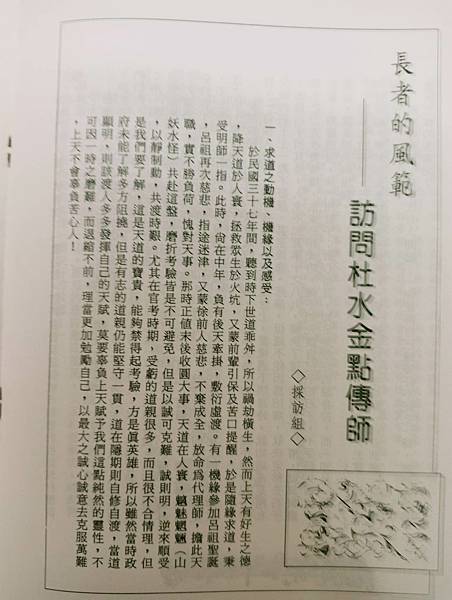 長者的風範
——訪問杜水金點傳師
◇採訪組◇
一、求道之動機、機緣以及感受：
於民國三十七年間，聽到時下世道乖舛，所以禍劫橫生，然而上天有好生之德
，降天道於人寰，拯救眾生於火坑，又蒙前輩引保及苦口提醒，於是隨緣求道，秉
受明師一指。此時，尚在中年，負有後天牽掛，敷衍虛渡。有一機緣參加呂祖聖誕
，呂祖再次慈悲，指途迷津，又蒙徐前人慈悲，不棄成全，放命為代理師，擔此天
職，實不勝負荷，愧對天事。那時正值末後收圓大事，天道在人寰，魑魅魍魎（山
妖水怪）共赴這盤，磨折考驗皆是不可避免，但是以誠可克難，誠則明，逆來順受
，以靜制動，共渡時艱。尤其在官考時期，受虧的道親很多，而且很不合情理，但
是我們要了解，這是天道的寶貴，能夠禁得起考驗，方是真英雄，所以雖然當時政
府未能了解多方阻撓，但是有志的道親仍能堅守一貫，道在隱期則自修自渡，當道
顯明，則該渡人多多發揮自己的天賦，莫要辜負上天賦予我們這點純然的靈性，不
可因一時之磨難，而退縮不前，理當更加勉勵自己，以最大之誠心誠意去克服萬難
，上天不會辜負苦心人！